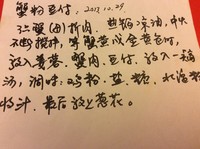 蟹粉豆付, 2013.10.29
3只蟹(田)拆肉. 热锅凉油, 中火
不断搅拌, 等蟹黄成金黄色时,
放入姜葱. 蟹肉. 豆付. 放入一碗
汤, 调味: 鸡粉. 盐. 糖. 水淀粉
将汁. 最后放上葱花.